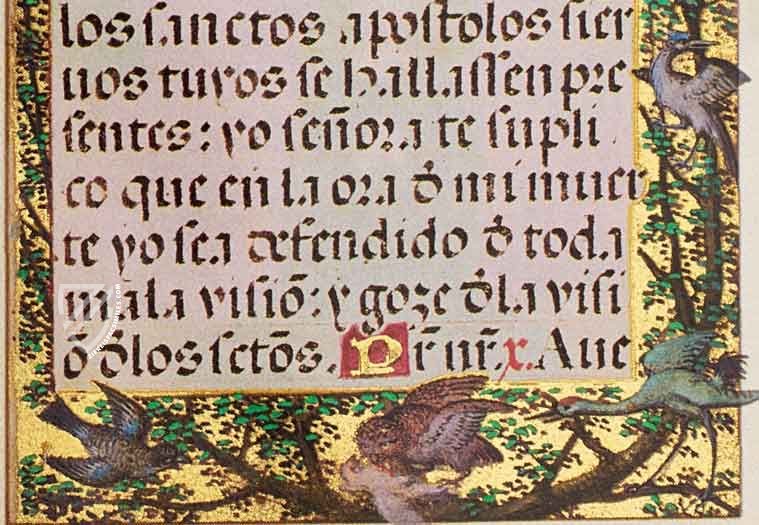 los sanctos apostolos sier
uos tuyos se hallassen pre
sentes: yo señora te supli
co que en la ora đ mi muer
te yo sea defendido đ toda
mala visiō: y goze đla visi
ō đlos sctōs. Pr̄ nr̄. x. Aue